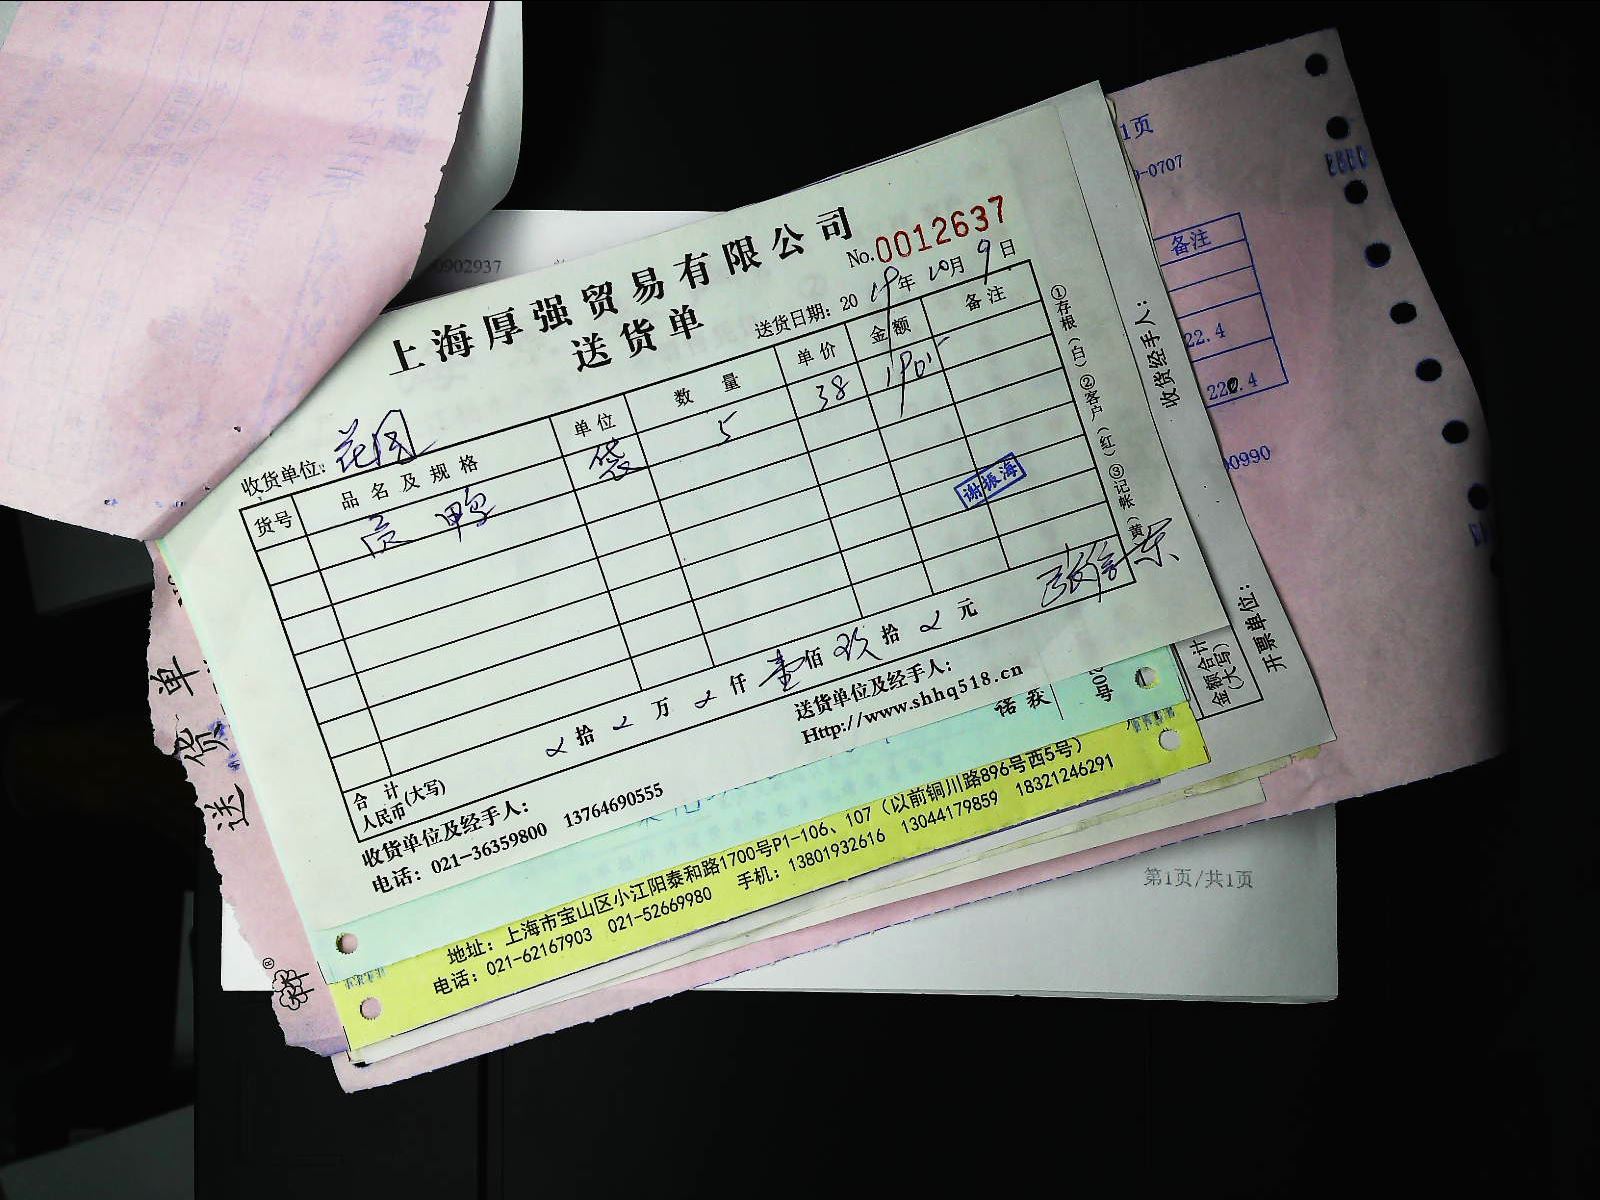 上海厚强贸易有限公司
送货单
No.0012637
送货日期：2019年10月9日
收货单位：花园
货号 品名及规格 单位 数量 单价 金额 备注
袋 5 38 190
谢振海
①存根（白）②客户（红）③来记（黄）
合计人民币(大写) 拾 万 仟 壹佰 玖拾 元
收货单位及经手人：
送货单位及经手人：
电话：021-36359800 13764690555
Http://www.shhq518.cn
地址：上海市宝山区小江阳泰和路1700号P1-106、107（以前铜川路896号西5号）
电话：021-62167903 021-52669980 手机：13801932616 13044179859 18321246291
收货经手人：
开票单位：
金额合计
(大写)
送货单
0902937
1页
-0707
备注
22.4
220.4
0990
第1页/共1页